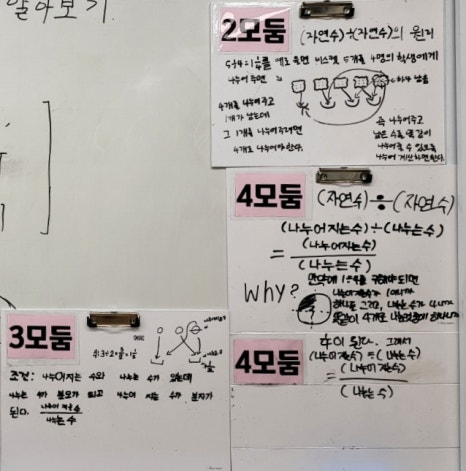 알아보기
2모둠
(자연수)÷(자연수)의 원리
5÷4=1¼를 예로 들면 비스켓 5개를 4명의 학생에게
나누어 주면
4개를 나누어주고
1개가 남는데
그 1개를 나누어주려면
4개로 나누어야한다.
하나 남음
즉 나누어주고
남은 수를 똑같이
나누어줄 수 있도록
나누어 계산하면한다.
4모둠
(자연수)÷(자연수)
(나누어지는수)÷(나누는수)
=
(나누어지는수)
(나누는수)
Why?
만약에 1÷4를 구해야되면
나누어지는수가 1이니까
하나를 그리고, 나누는 수가 4니까
똑같이 4개로
4모둠
수이 된다. 그래서
(나누어지는수)÷(나누는수)
=
(나누어지는수)
(나누는수)
3모둠
조건: 나누어지는 수와 나누는 수가 있는데
나누는 수가 분모가 되고 나누어 지는 수가 분자가
된다.
나누어 지는 수
나누는 수